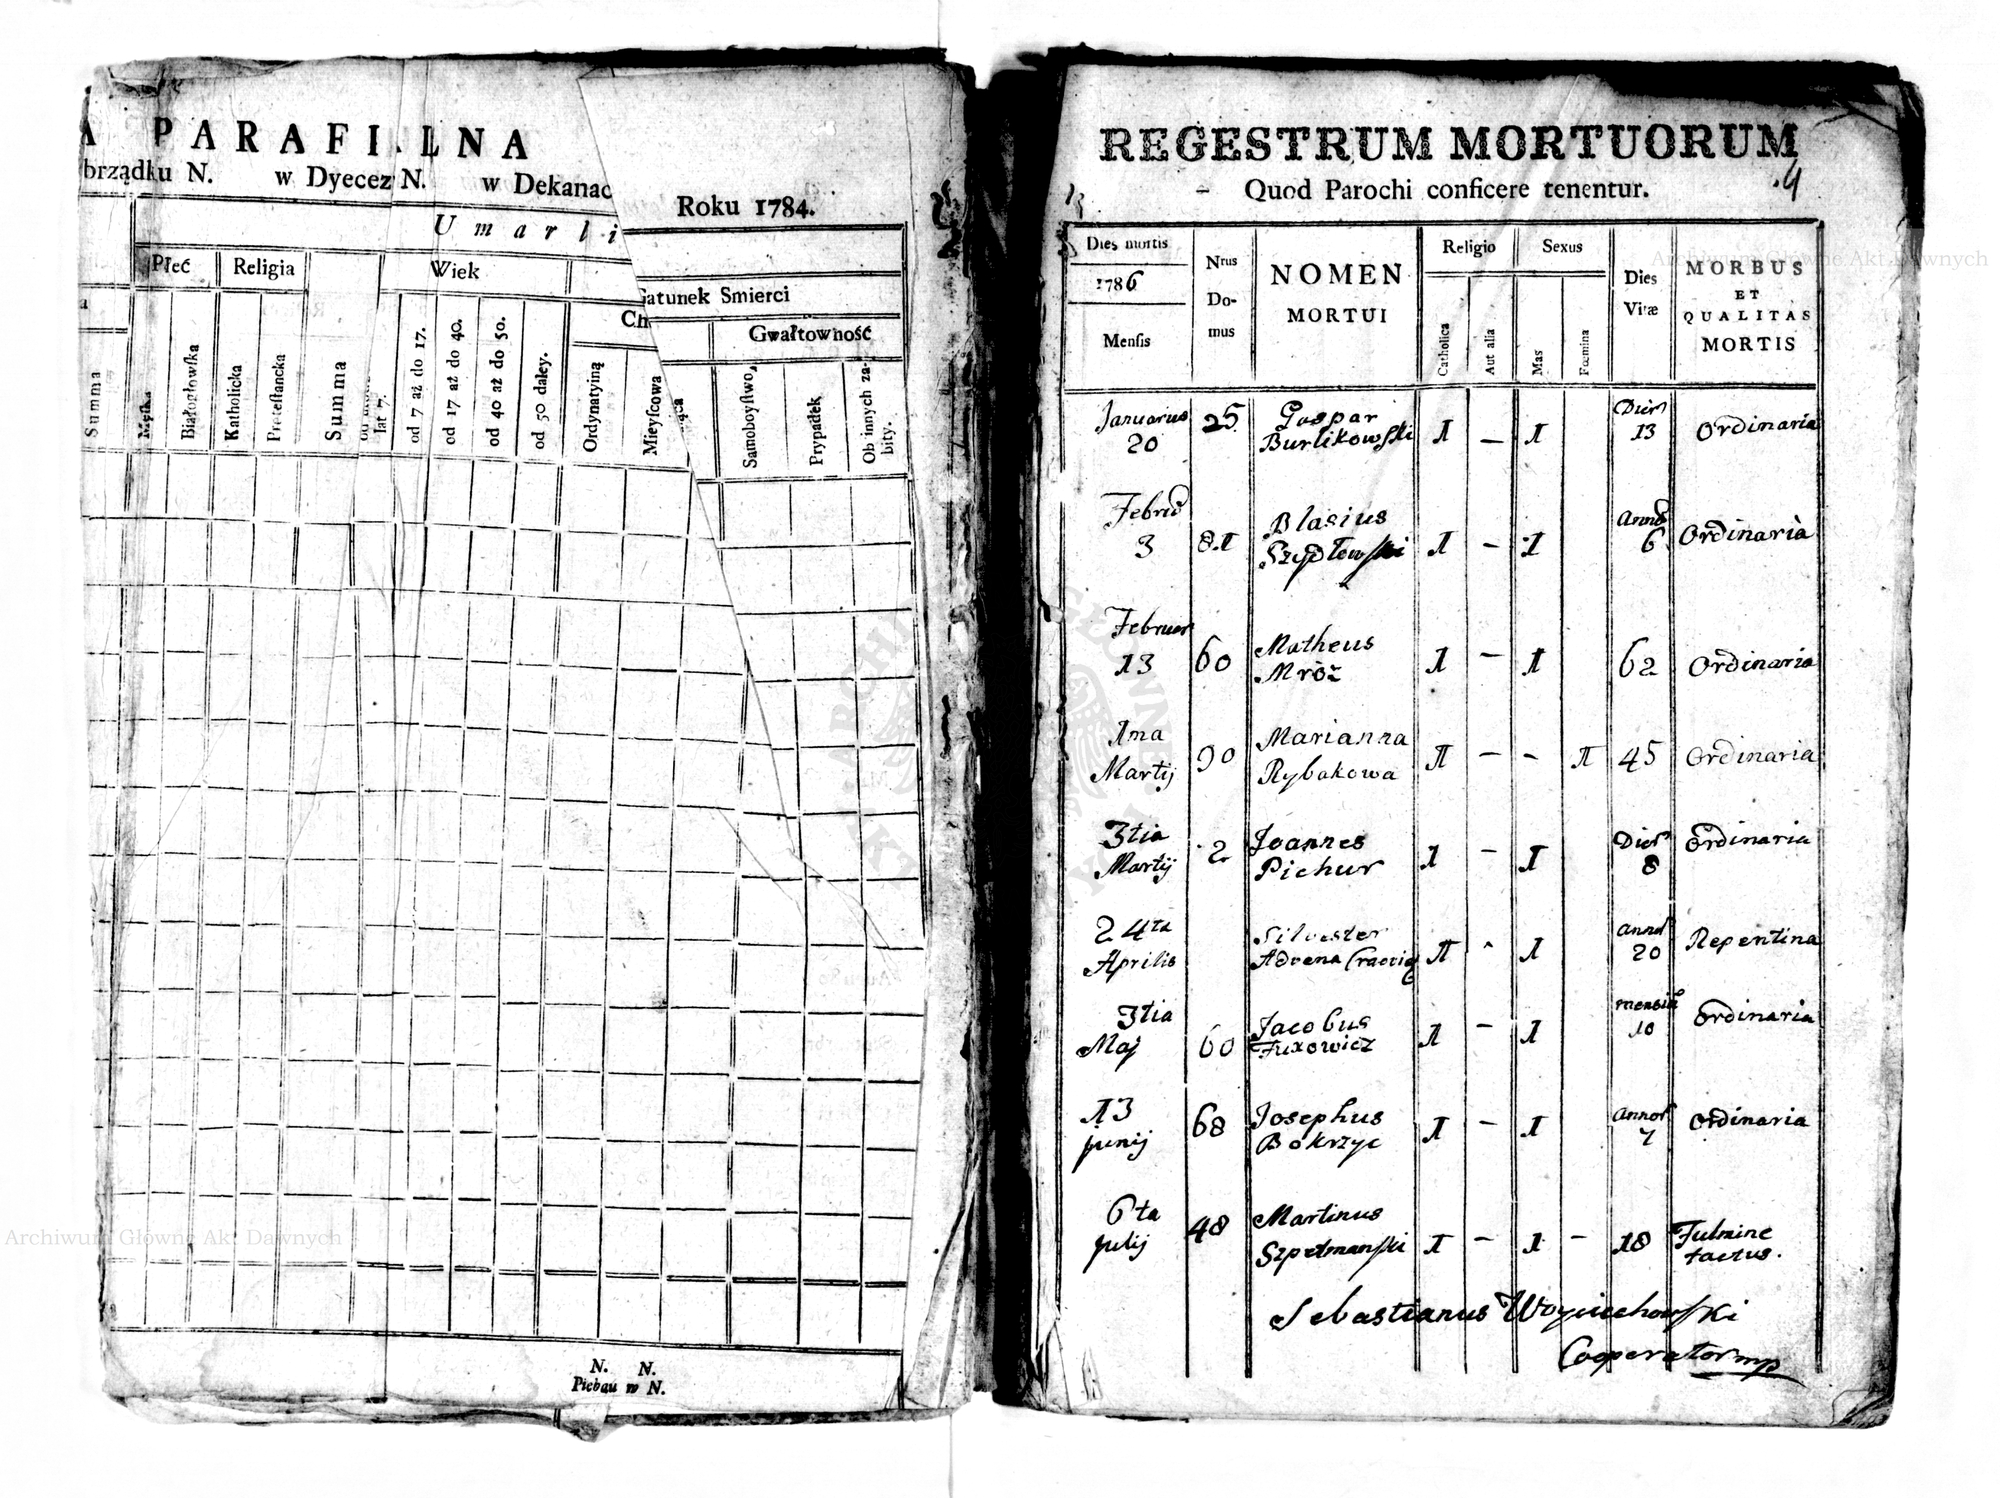 A PARAFIALNA
brządku N. w Dyecez N. w Dekanac
Roku 1784.
Umarli
Płeć Religia Wiek
Gatunek Smierci
Ch
Gwałtowność
Summa
Męska
Białogłowska
Katholicka
Protestancka
Summa
lat 7.
od 7 aż do 17.
od 17 aż do 40.
od 40 aż do 50.
od 50 daley.
Ordynatyiną
Mieyscowa
Samoboystwo,
Przypadek
Ob innych za-
bity.
N. N.
Pleban w N.
REGESTRUM MORTUORUM
Quod Parochi conficere tenentur.
Dies mortis
1786
Mensis
Nrus
Do-
mus
NOMEN
MORTUI
Religio
Catholica
Aut alia
Sexus
Mas
Fœmina
Dies
Vitæ
MORBUS
ET
QUALITAS
MORTIS
Januarius 20 25 Gaspar Burlikowski 1 – 1 Dier 13 Ordinaria
3 81 Blasius Szydłowski 1 – 1 6 Ordinaria
Februar 13 60 Matheus Mróz 1 – 1 62 Ordinaria
1ma Martij 90 Marianna Rybakowa 1 – – 1 45 Ordinaria
3tia Martij 2 Joannes Pichur 1 – 1 Dier 8 Ordinaria
24ta Aprilis Silvester Advena 1 - 1 annor 20 Repentina
3tia Maj 60 Jacobus Fuxowicz 1 – 1 mensiu 10 Ordinaria
13 junij 68 Josephus Bokrzyc 1 – 1 annor 7 Ordinaria
6ta julij 48 Martinus Szpetmanski 1 – 1 – 18 Fulmine tactus.
Sebastianus Woyciechowski
Cooperator mp
Archiwum Główne Akt Dawnych
Archiwum Główne Akt Dawnych